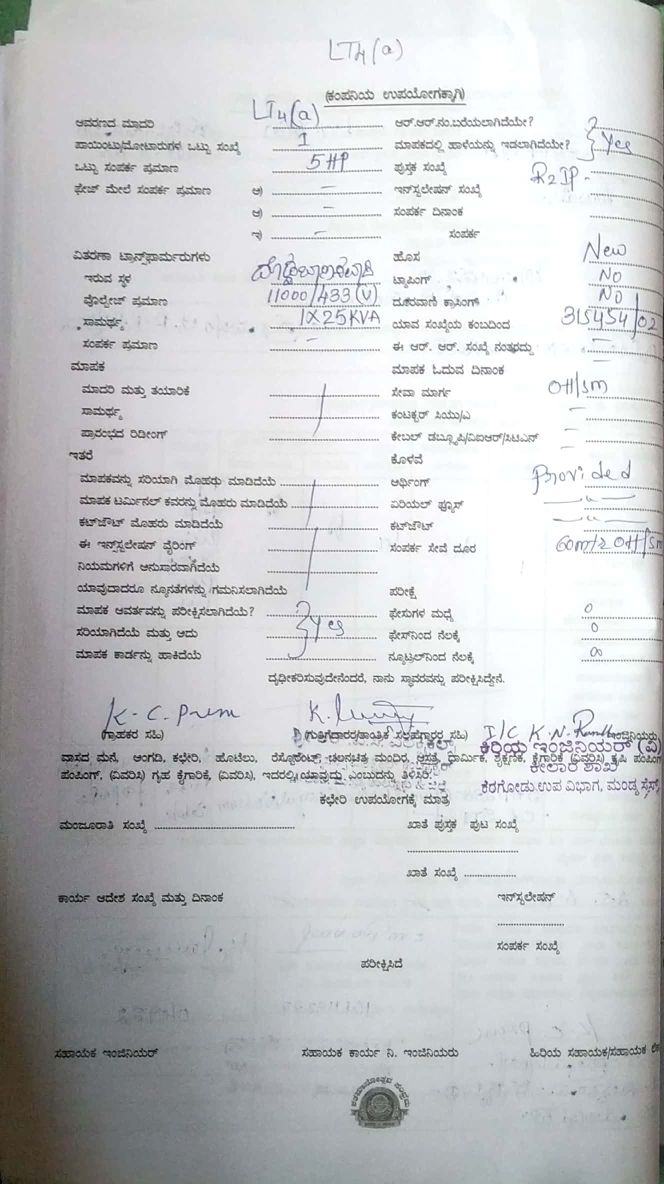 LT4(a)
(ಕಂಪನಿಯ ಉಪಯೋಗಕ್ಕಾಗಿ)
ಆವರಣದ ಮಾದರಿ LT4(a) ಆರ್.ಆರ್.ನಂ.ಬರೆಯಲಾಗಿದೆಯೇ?
ಪಾಯಿಂಟು/ಮೋಟಾರುಗಳ ಒಟ್ಟು ಸಂಖ್ಯೆ 1 ಮಾಪಕದಲ್ಲಿ ಹಾಳೆಯನ್ನು ಇಡಲಾಗಿದೆಯೇ? Yes
ಒಟ್ಟು ಸಂಪರ್ಕ ಪ್ರಮಾಣ 5HP ಪುಸ್ತಕ ಸಂಖ್ಯೆ
ಫೇಜ್ ಮೇಲೆ ಸಂಪರ್ಕ ಪ್ರಮಾಣ ಅ) – ಇನ್‌ಸ್ಟಲೇಷನ್ ಸಂಖ್ಯೆ
ಆ) – ಸಂಪರ್ಕ ದಿನಾಂಕ
ಇ) – ಸಂಪರ್ಕ
ವಿತರಣಾ ಟ್ರಾನ್ಸ್‌ಫಾರ್ಮರುಗಳು ಹೊಸ New
ಇರುವ ಸ್ಥಳ ಟ್ಯಾಪಿಂಗ್ NO
ವೋಲ್ಟೇಜ್ ಪ್ರಮಾಣ 11000/433(V) ದೂರವಾಣಿ ಕ್ರಾಸಿಂಗ್ NO
ಸಾಮರ್ಥ್ಯ 1X25KVA ಯಾವ ಸಂಖ್ಯೆಯ ಕಂಬದಿಂದ 315454/02
ಸಂಪರ್ಕ ಪ್ರಮಾಣ – ಈ ಆರ್. ಆರ್. ಸಂಖ್ಯೆ ನಂತರದ್ದು –
ಮಾಪಕ ಮಾಪಕ ಓದುವ ದಿನಾಂಕ –
ಮಾದರಿ ಮತ್ತು ತಯಾರಿಕೆ ಸೇವಾ ಮಾರ್ಗ OH/sm
ಸಾಮರ್ಥ್ಯ ಕಂಟಕ್ಟರ್ ಸಿಯು/ಎ –
ಪ್ರಾರಂಭದ ರಿಡಿಂಗ್ ಕೇಬಲ್ ಡಬ್ಲ್ಯೂಪಿ/ವಿಐಆರ್/ಸಿಟಿಎಸ್ –
ಇತರೆ ಕೊಳವೆ –
ಮಾಪಕವನ್ನು ಸರಿಯಾಗಿ ಮೊಹರು ಮಾಡಿದೆಯೆ ಆರ್ಥಿಂಗ್ Provided
ಮಾಪಕ ಟರ್ಮಿನಲ್ ಕವರನ್ನು ಮೊಹರು ಮಾಡಿದೆಯೆ ಏರಿಯಲ್ ಫ್ಯೂಸ್ —〃—
ಕಟ್‌ಔಟ್ ಮೊಹರು ಮಾಡಿದೆಯೆ ಕಟ್‌ಔಟ್ —〃—
ಈ ಇನ್‌ಸ್ಟಲೇಷನ್ ವೈರಿಂಗ್ ಸಂಪರ್ಕ ಸೇವೆ ದೂರ
ನಿಯಮಗಳಿಗೆ ಅನುಸಾರವಾಗಿದೆಯೆ
ಯಾವುದಾದರೂ ನ್ಯೂನತೆಗಳನ್ನು ಗಮನಿಸಲಾಗಿದೆಯೆ ಪರೀಕ್ಷೆ
ಮಾಪಕ ಆವರ್ತವನ್ನು ಪರೀಕ್ಷಿಸಲಾಗಿದೆಯೆ? ಫೇಸುಗಳ ಮಧ್ಯೆ 0
ಸರಿಯಾಗಿದೆಯೆ ಮತ್ತು ಅದು Yes ಫೇಸ್‌ನಿಂದ ನೆಲಕ್ಕೆ 0
ಮಾಪಕ ಕಾರ್ಡನ್ನು ಹಾಕಿದೆಯೆ ನ್ಯೂಟ್ರಲ್‌ನಿಂದ ನೆಲಕ್ಕೆ
ದೃಢೀಕರಿಸುವುದೇನೆಂದರೆ, ನಾನು ಸ್ಥಾವರವನ್ನು ಪರೀಕ್ಷಿಸಿದ್ದೇನೆ.
K. C. Prem
(ಗ್ರಾಹಕರ ಸಹಿ) (ಗುತ್ತಿಗೆದಾರರ/ತಾಂತ್ರಿಕ ಸಲಹೆಗಾರರ ಸಹಿ) ಇಂಜಿನಿಯರು
ಕಿರಿಯ ಇಂಜಿನಿಯರ್ (ವಿ)
ವಾಸದ ಮನೆ, ಅಂಗಡಿ, ಕಛೇರಿ, ಹೊಟೆಲು, ರೆಸ್ಟೋರೆಂಟ್, ಚಲನಚಿತ್ರ ಮಂದಿರ, ಆಸ್ಪತ್ರೆ, ಧಾರ್ಮಿಕ, ಶೈಕ್ಷಣಿಕ, ಕೈಗಾರಿಕೆ (ವಿವರಿಸಿ) ಕೃಷಿ ಪಂಪಿಂಗ್
ಪಂಪಿಂಗ್, (ವಿವರಿಸಿ) ಗೃಹ ಕೈಗಾರಿಕೆ, (ವಿವರಿಸಿ, ಇದರಲ್ಲಿ ಯಾವುದು ಎಂಬುದನ್ನು ತಿಳಿಸಿರಿ.
ಕೀಲಾರ ಶಾಖೆ
ಕೆರಗೋಡು ಉಪ ವಿಭಾಗ, ಮಂಡ್ಯ
ಕಛೇರಿ ಉಪಯೋಗಕ್ಕೆ ಮಾತ್ರ
ಮಂಜೂರಾತಿ ಸಂಖ್ಯೆ ಖಾತೆ ಪುಸ್ತಕ ಪುಟ ಸಂಖ್ಯೆ
ಖಾತೆ ಸಂಖ್ಯೆ
ಕಾರ್ಯ ಆದೇಶ ಸಂಖ್ಯೆ ಮತ್ತು ದಿನಾಂಕ ಇನ್‌ಸ್ಟಲೇಷನ್
ಸಂಪರ್ಕ ಸಂಖ್ಯೆ
ಪರೀಕ್ಷಿಸಿದೆ
ಸಹಾಯಕ ಇಂಜಿನಿಯರ್ ಸಹಾಯಕ ಕಾರ್ಯ ನಿ. ಇಂಜಿನಿಯರು ಹಿರಿಯ ಸಹಾಯಕ/ಸಹಾಯಕ